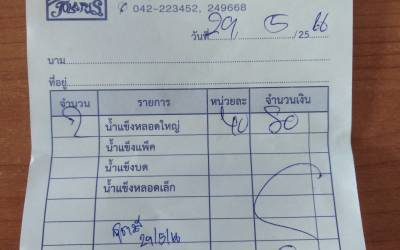 042-223452, 249668
วันที่ 29 / 5 / 25 66
นาม
ที่อยู่
จำนวน รายการ หน่วยละ จำนวนเงิน
2 น้ำแข็งหลอดใหญ่ 40 80
น้ำแข็งแพ็ค
น้ำแข็งบด
น้ำแข็งหลอดเล็ก
29/5/66